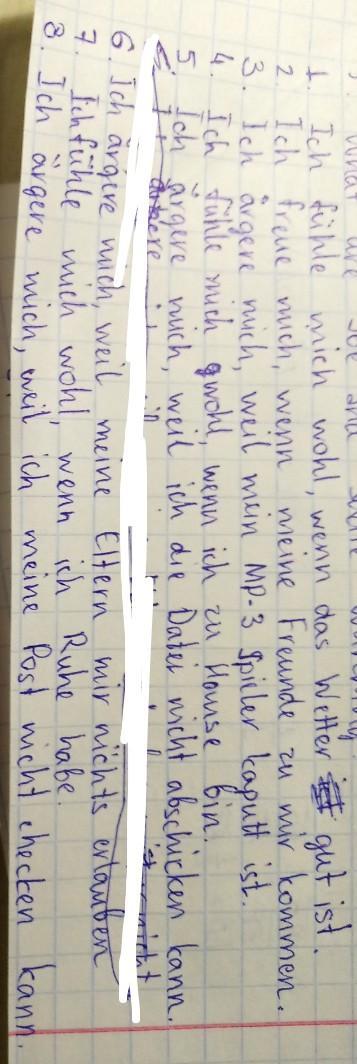 1. Ich fühle mich wohl, wenn das Wetter gut ist.
2. Ich freue mich, wenn meine Freunde zu mir kommen.
3. Ich ärgere mich, weil mein MP-3 Spieler kaputt ist.
4. Ich fühle mich wohl, wenn ich zu Hause bin.
5. Ich ärgere mich, weil ich die Datei nicht abschicken kann.
6. Ich ärgere mich, weil meine Eltern mir nichts erlauben
7. Ich fühle mich wohl, wenn ich Ruhe habe.
8. Ich ärgere mich, weil ich meine Post nicht checken kann.